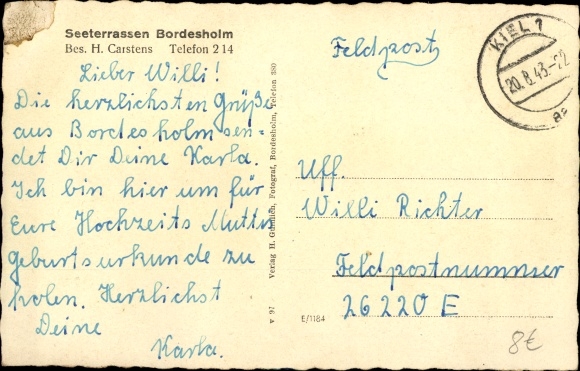 Seeterrassen Bordesholm
Bes. H. Carstens Telefon 214
Lieber Willi!
Die herzlichsten Grüße
aus Bordesholm sen=
det Dir Deine Karla.
Ich bin hier um für
Eure Hochzeits Mutter
Geburtsurkunde zu
holen. Herzlichst
Deine
Karla.
v 97 Verlag H. Fotograf, Bordesholm, Telefon 280
Feldpost
KIEL 1
20.8.43.-22
Uff.
Willi Richter
Feldpostnummer
26220 E
E/1184
8€